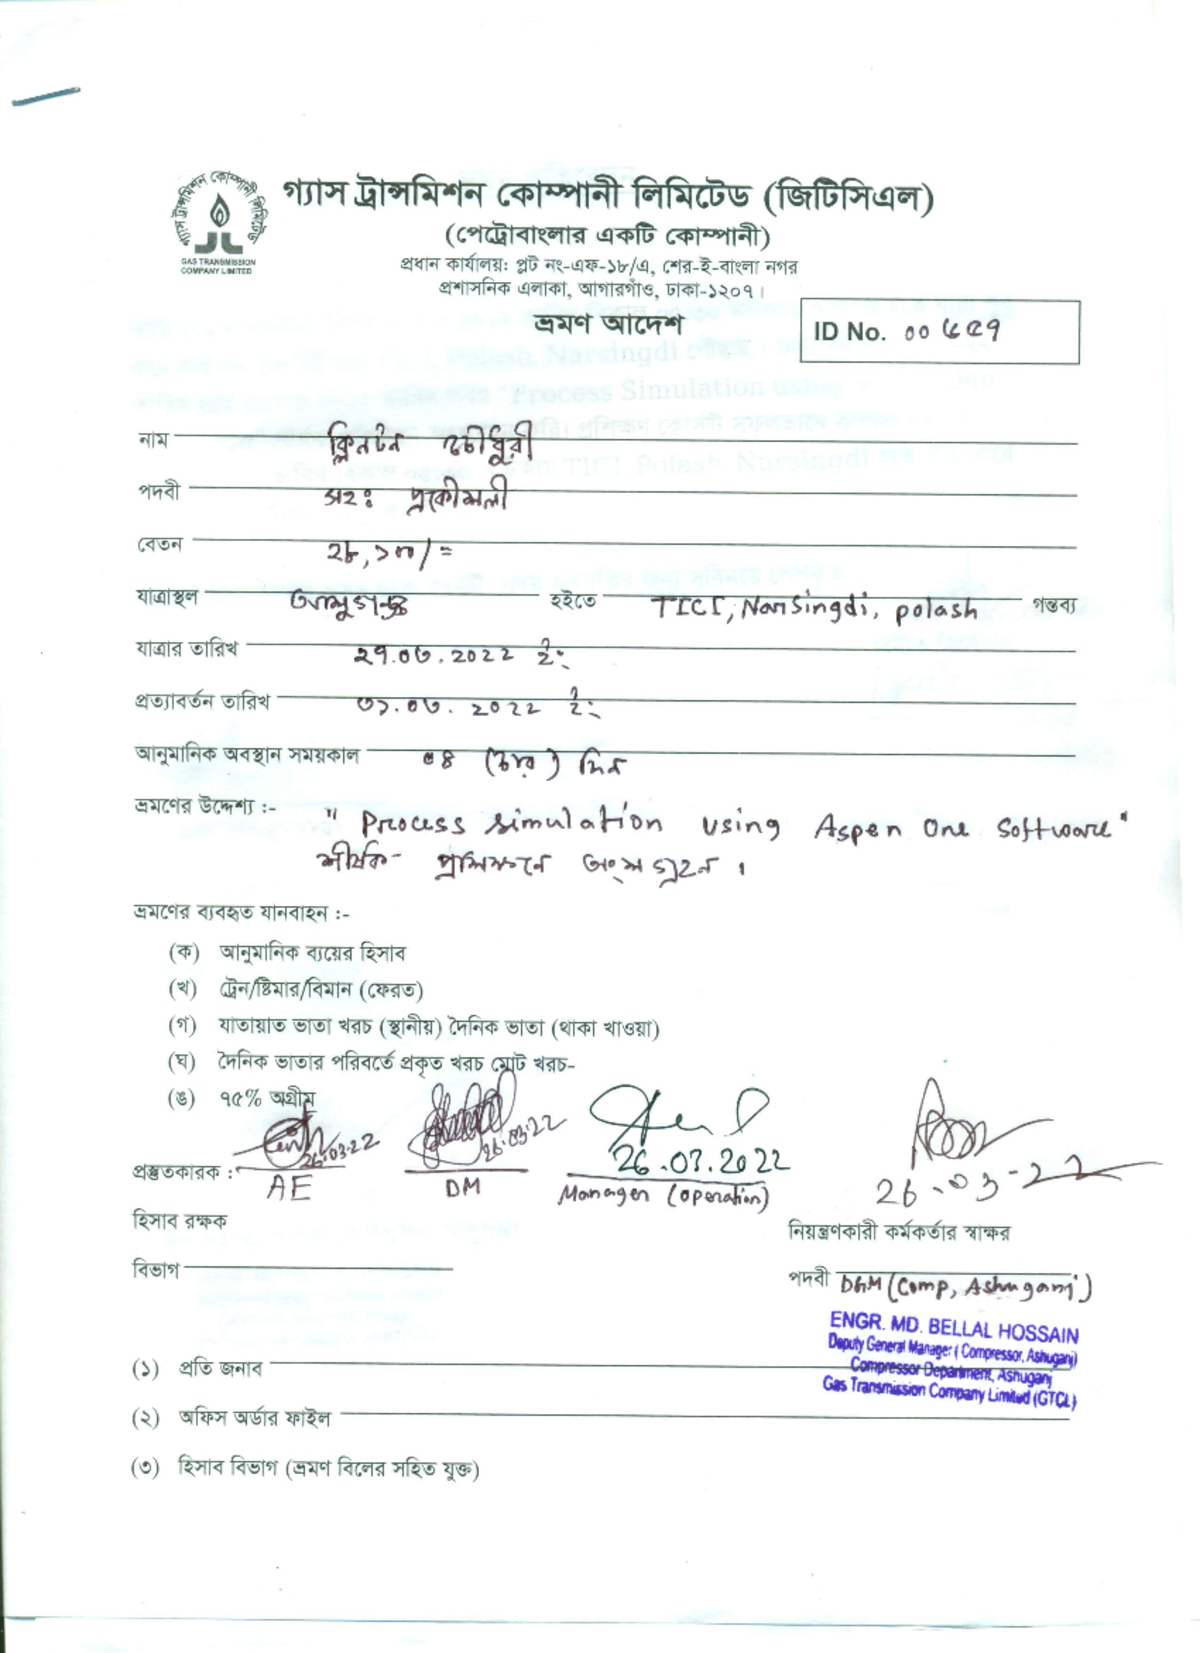 গ্যাস ট্রান্সমিশন কোম্পানী লিমিটেড
GAS TRANSMISSION
COMPANY LIMITED
গ্যাস ট্রান্সমিশন কোম্পানী লিমিটেড (জিটিসিএল)
(পেট্রোবাংলার একটি কোম্পানী)
প্রধান কার্যালয়: প্লট নং-এফ-১৮/এ, শের-ই-বাংলা নগর
প্রশাসনিক এলাকা, আগারগাঁও, ঢাকা-১২০৭।
ভ্রমণ আদেশ
ID No.
নাম ক্লিনটন চৌধুরী
পদবী সহঃ প্রকৌশলী
বেতন ২৮,১০০/=
যাত্রাস্থল আশুগঞ্জ হইতে TICI, Narsingdi, polash গন্তব্য
যাত্রার তারিখ ২৭.০৩.2022 ইং
প্রত্যাবর্তন তারিখ ৩১.০৩.2022 ইং
আনুমানিক অবস্থান সময়কাল ০৪ (চার) দিন
ভ্রমণের উদ্দেশ্য :-
" Process simulation using Aspen One Software"
শীর্ষক প্রশিক্ষনে অংশগ্রহন ।
ভ্রমণের ব্যবহৃত যানবাহন :-
(ক) আনুমানিক ব্যয়ের হিসাব
(খ) ট্রেন/ষ্টিমার/বিমান (ফেরত)
(গ) যাতায়াত ভাতা খরচ (স্থানীয়) দৈনিক ভাতা (থাকা খাওয়া)
(ঘ) দৈনিক ভাতার পরিবর্তে প্রকৃত খরচ মোট খরচ-
(ঙ) ৭৫% অগ্রীম
26.03.22 26.03.22 26.03.2022 26-03-22
প্রস্তুতকারক : AE DM Manager (operation)
হিসাব রক্ষক
নিয়ন্ত্রণকারী কর্মকর্তার স্বাক্ষর
বিভাগ
পদবী DGM (Comp, Ashuganj)
ENGR. MD. BELLAL HOSSAIN
Deputy General Manager ( Compressor, Ashuganj)
Compressor Department, Ashuganj
Gas Transmission Company Limited (GTCL)
(১) প্রতি জনাব
(২) অফিস অর্ডার ফাইল
(৩) হিসাব বিভাগ (ভ্রমণ বিলের সহিত যুক্ত)